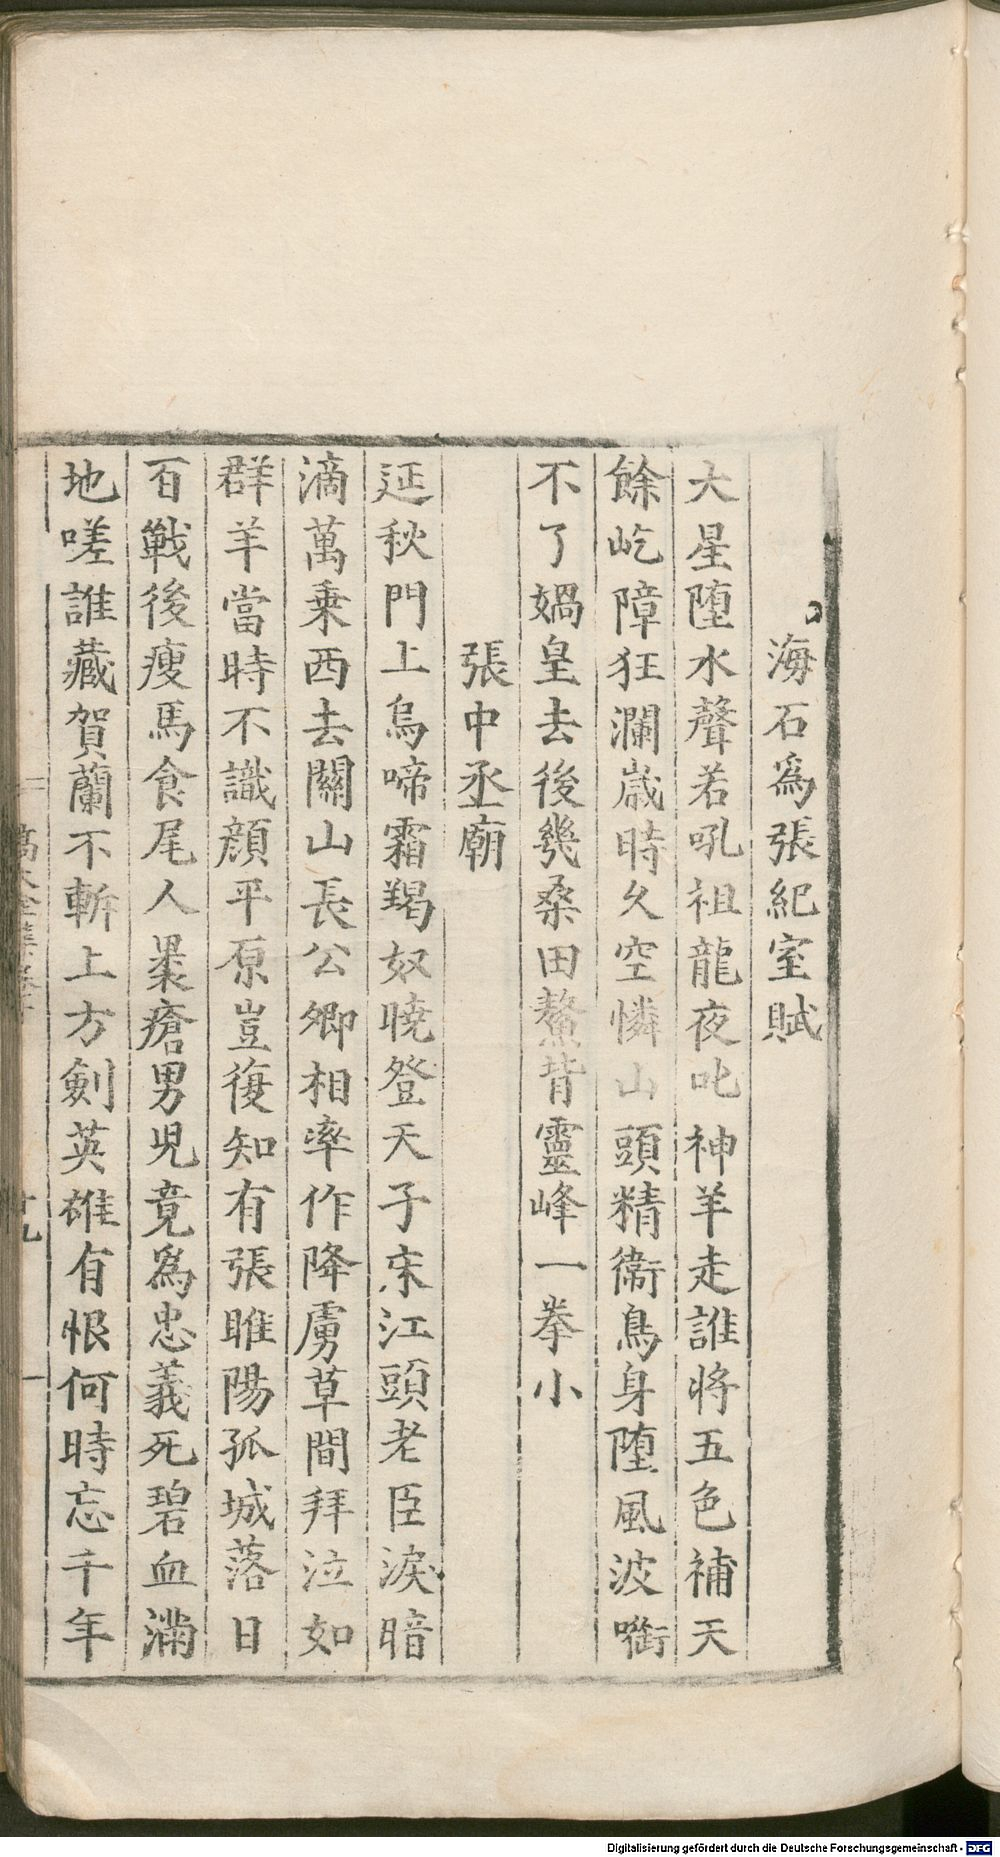 海石爲張紀室賦
大星墮水聲若吼祖龍夜叱神羊走誰將五色補天
餘屹障狂瀾歲時久空憐山頭精衛鳥身墮風波啣
不了媧皇去後幾桑田鰲背靈峰一拳小
張中丞廟
延秋門上烏啼霜羯奴曉登天子床江頭老臣淚暗
滴萬乗西去關山長公卿相率作降虜草間拜泣如
群羊當時不識顔平原豈復知有張睢陽孤城落日
百戰後瘦馬食尾人裹瘡男兒竟爲忠義死碧血滿
地嗟誰藏賀蘭不斬上方劍英雄有恨何時忘千年
十九
Digitalisierung gefördert durch die Deutsche Forschungsgemeinschaft - DFG